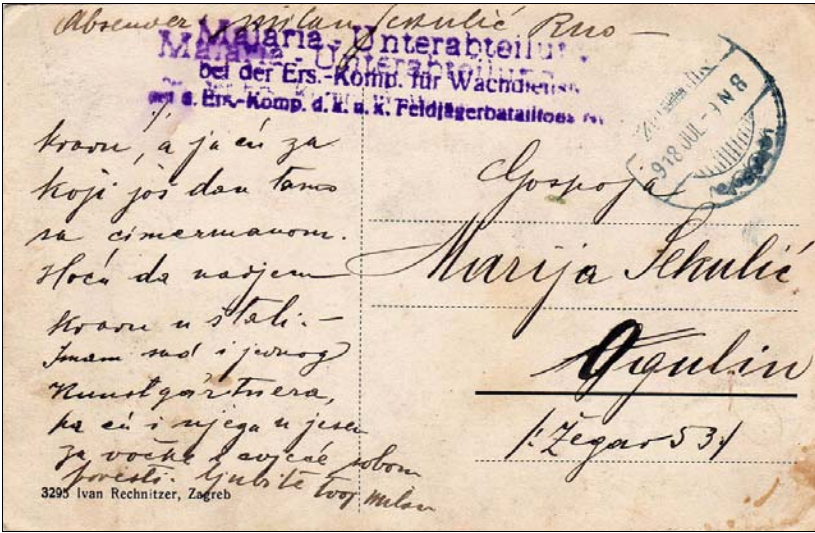 Absender: Milan Sekulić
Malaria-Unterabteilung
Malaria-Unterabteilung
bei der Ers.-Komp. für Wachdienst
d. Ers.-Komp. d. k. u. k. Feldjägerbataillons
918 JUL
N8
kravu, a ja ću za
koji još dan tamo
sa cimermanom.
Hoću da nadjem
kravu u štali. -
Imam sad i jednog
Kunstgärtnera,
pa ću i njega u jesen
za voćke i cvjeće sobom
povesti. Ljubi te tvoj Milan
Gospoja
Marija Sekulić
Ogulin
/: Žegar 53 :/
3295 Ivan Rechnitzer, Zagreb